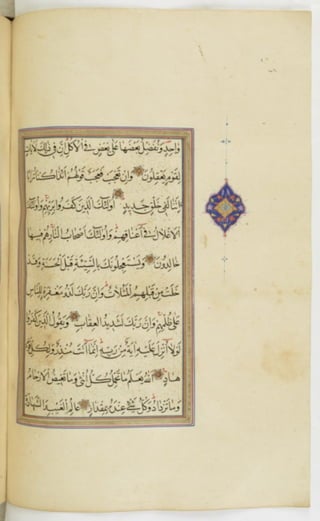 واحد ونفضل بعضها على بعض في الاكل ان في ذلك لايات
لقوم يعقلون وان تعجب فعجب قولهم ائذا كنا ترابا
ائنا لفي خلق جديد اولئك الذين كفروا بربهم واولئك
الاغلال في اعناقهم واولئك اصحاب النار هم فيها
خالدون ويستعجلونك بالسيئة قبل الحسنة وقد
خلت من قبلهم المثلات وان ربك لذو مغفرة للناس
على ظلمهم وان ربك لشديد العقاب ويقول الذين كفروا
لولا انزل عليه اية من ربه انما انت منذر ولكل قوم
هاد الله يعلم ما تحمل كل انثى وما تغيض الارحام
وما تزداد وكل شيء عنده بمقدار عالم الغيب والشهادة